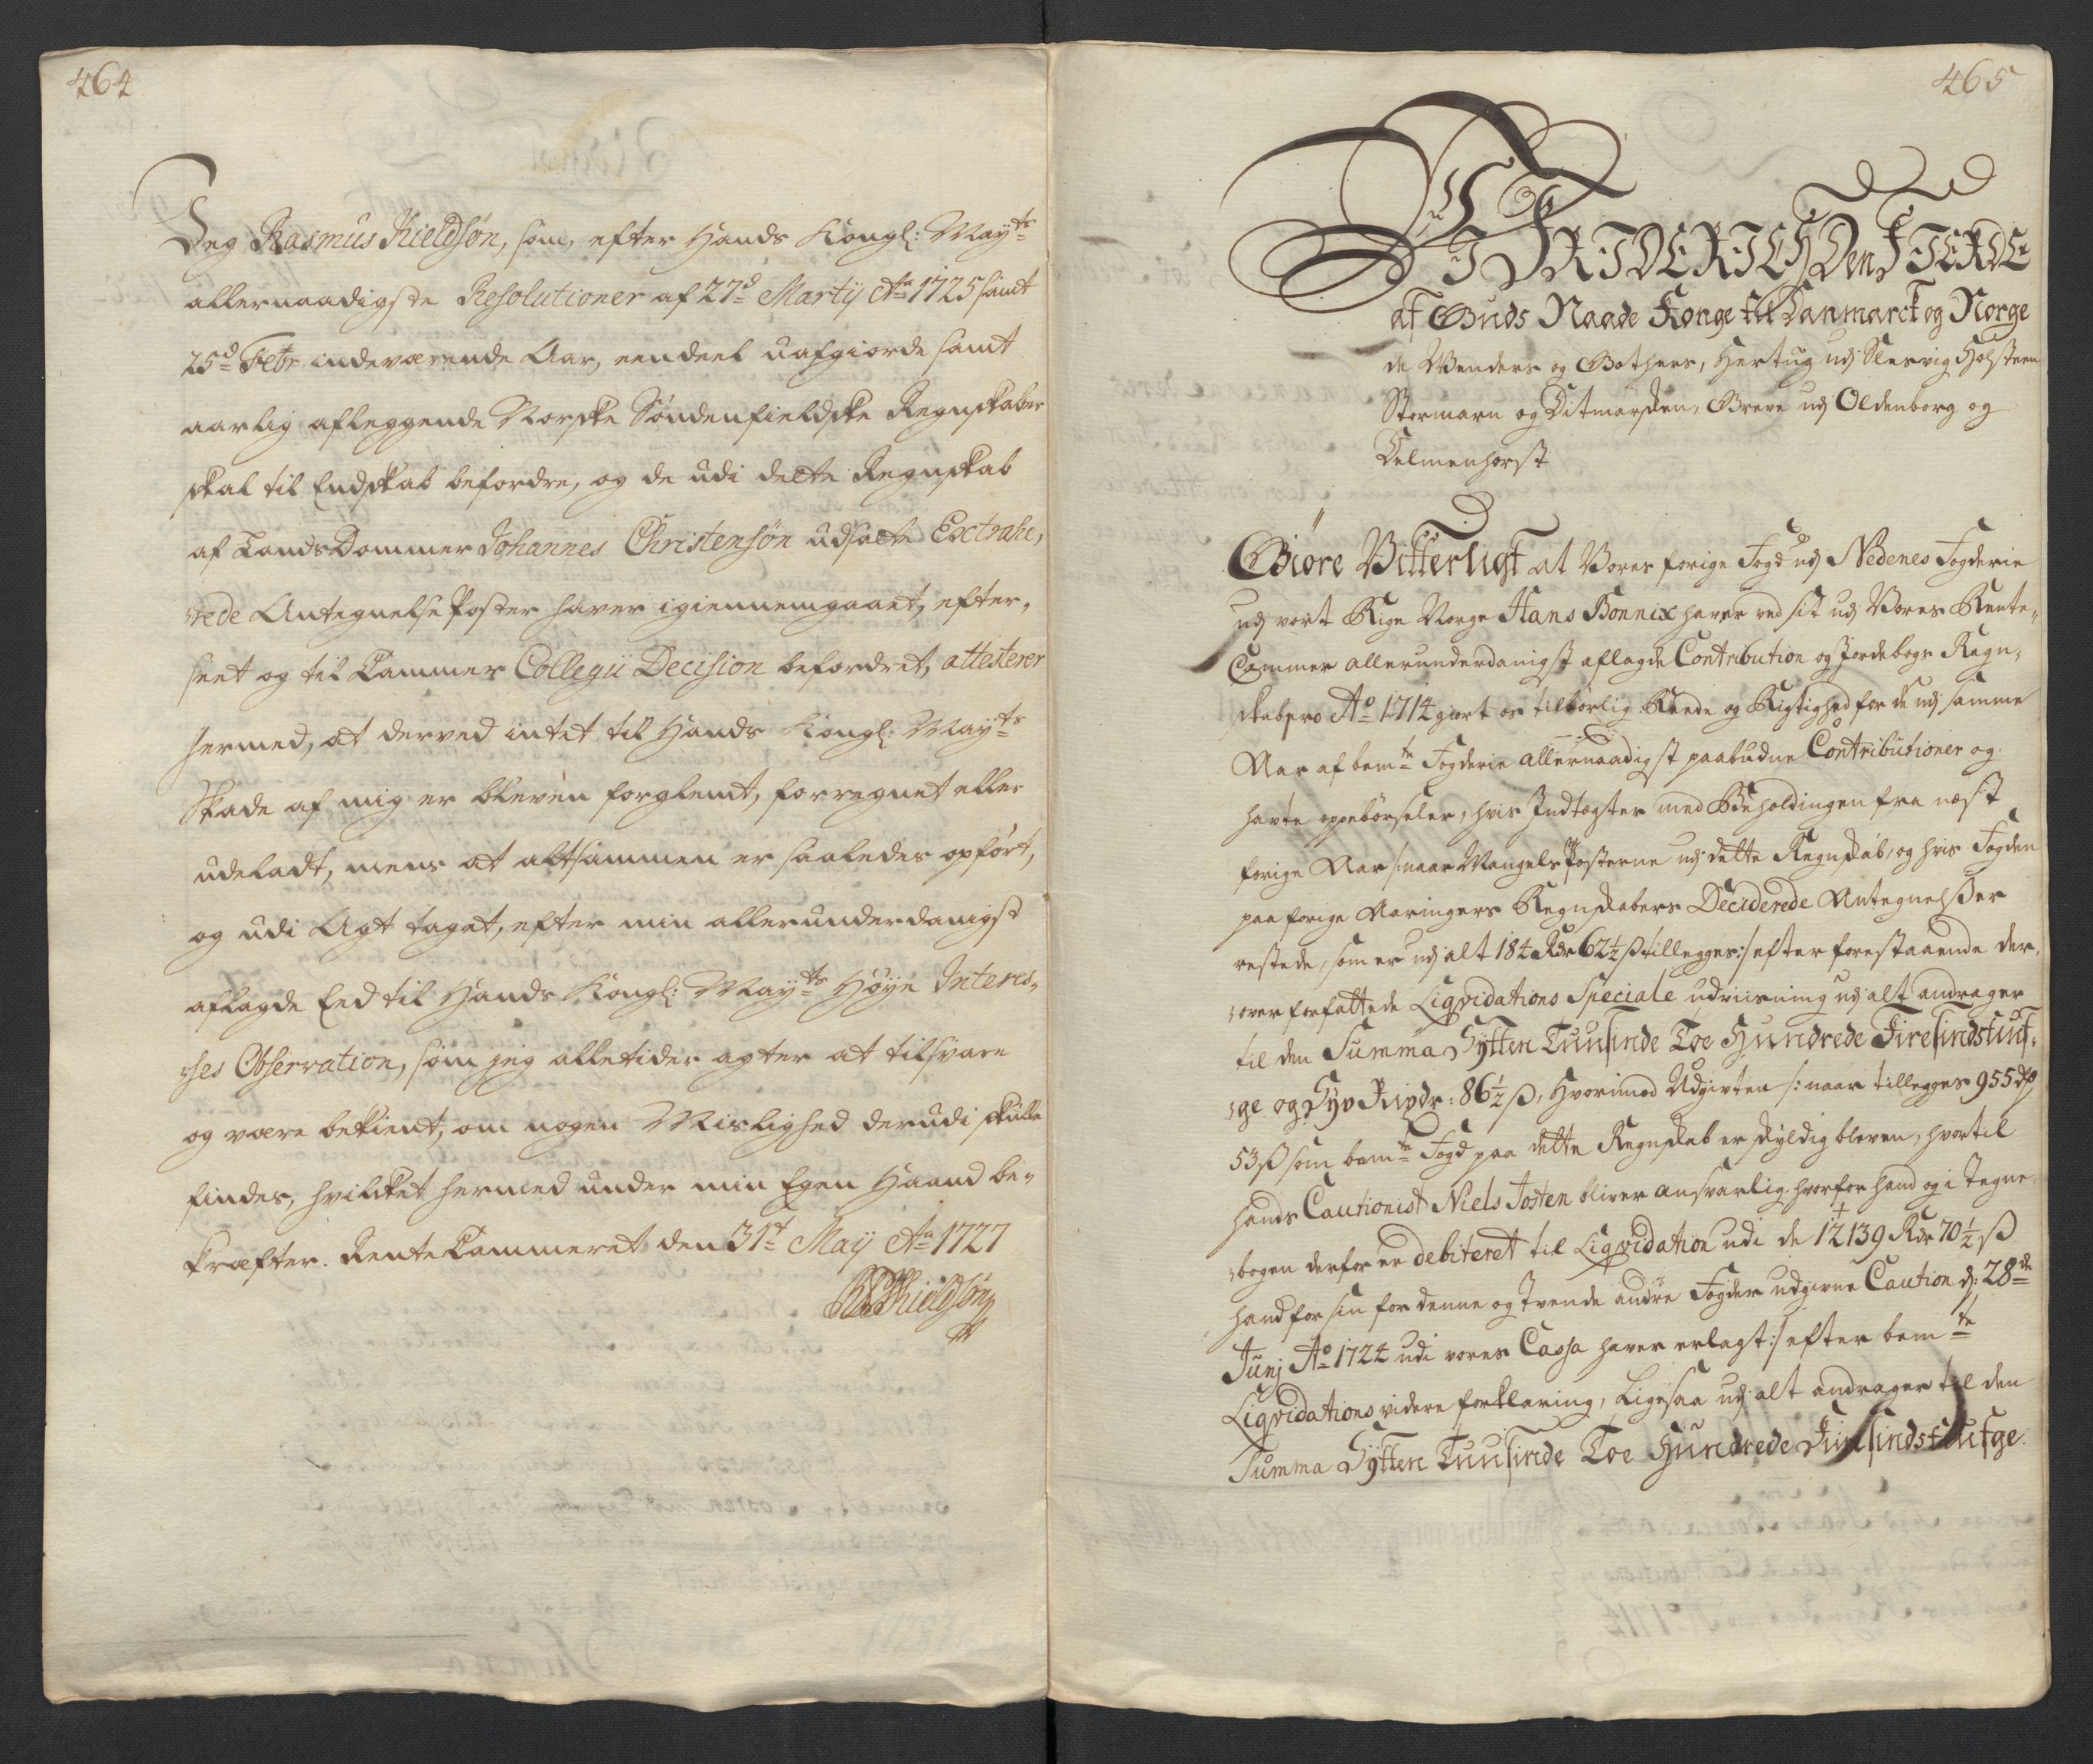 464
Jeg Rasmus Kieldsøn, som, efter Hands Kongl: Mayts
allernaadigste Resolutioner af 27d Martij Ao 1725 samt
25d Febr indeværende Aar, eendeel uafgiorde samt
aarlig aflæggende Norske Søndenfieldske Regnskaber
skal til Endskab befordre, og de udi dette Regnskab
af LandsDommer Johannes Christensøn udsatte Extrahe,
rede Antegnelse Poster haver igiennemgaaet, efter,
seet og til Cammer Collegii Decision befordret, attesterer
hermed, at derved intet til Hands Kongl: Mayts
Skade af mig er bleven forglemt, forregnet eller
udeladt, mens at altsammen er saaledes opført,
og udi Agt taget, efter min allerunderdanigst
aflagde Eed til Hands Kongl: Mayts Høye Interes,
ses Observation, som jeg alletider agter at tilsvare
og være bekient, om nogen Mislighed derudi skulle
findes, hvilcket hermed under min Egen Haand be,
kræfter. RenteCammeret den 31t Maij Ao 1727
R Kieldsøn
465
FRIDERICH Den FIERDE
af Guds Naade Konge til Danmarck og Norge
de Wenders og Gothers, Hertug udj Slesvig Holsteen
Stormarn og Ditmarsken, Greve udj Oldenborg og
Delmenhorst
Giøre Vitterligt at Vores forige Fogd udj Nedenes Fogderie
udj vort Rige Norge Hans Bonnix haver ved sit udj Vores Rente,
Cammer allerunderdanigst aflagde Contribution og Jordebogs Regn,
skab pro Ao 1714 giort os tilbørlig Reede og Rigtighed for de udj samme
Aar af bemte Fogderie allernaadigst paabudne Contributioner og
havte oppebørseler, hvis Indtægter med Beholdingen fra næst
forige Aar /:naar Mangels Posterne udj dette Regnskab, og hvis Fogden
paa forige Aaringers Regnskabers Deciderede Antegnelsser
restede, som er udj alt 184 Rdr 62½ ß tillegges:/ efter forestaaende der,
over forfattede Liqvidations Speciale udviisning udj alt andrager
til den Summa Sytten Tuusinde Toe Hundrede Firesindstiuf,
ge og Syv Rixdr: 86½ ß, Hvorimod Udgivten /:naar tillegges 955 d
53 ß som bemte Fogd paa dette Regnskab er skyldig bleven, hvortil
hands Cautionist Niels Josten bliver ansvarlig, hvorfor hand og i Tegne
bogen derfor er debiteret til Liqvidation udi de 12139 Rdr 70½ ß
hand for sin for denne og tvende andre Fogder udgivne Caution d: 28de
Junj Ao 1724 udi vores Cassa haver erlagt:/ efter bemte
Liqvidations videre forklaring, Ligesaa udj alt andrager til den
Summa Sytten Tuusinde Toe Hundrede Firesindstiufge